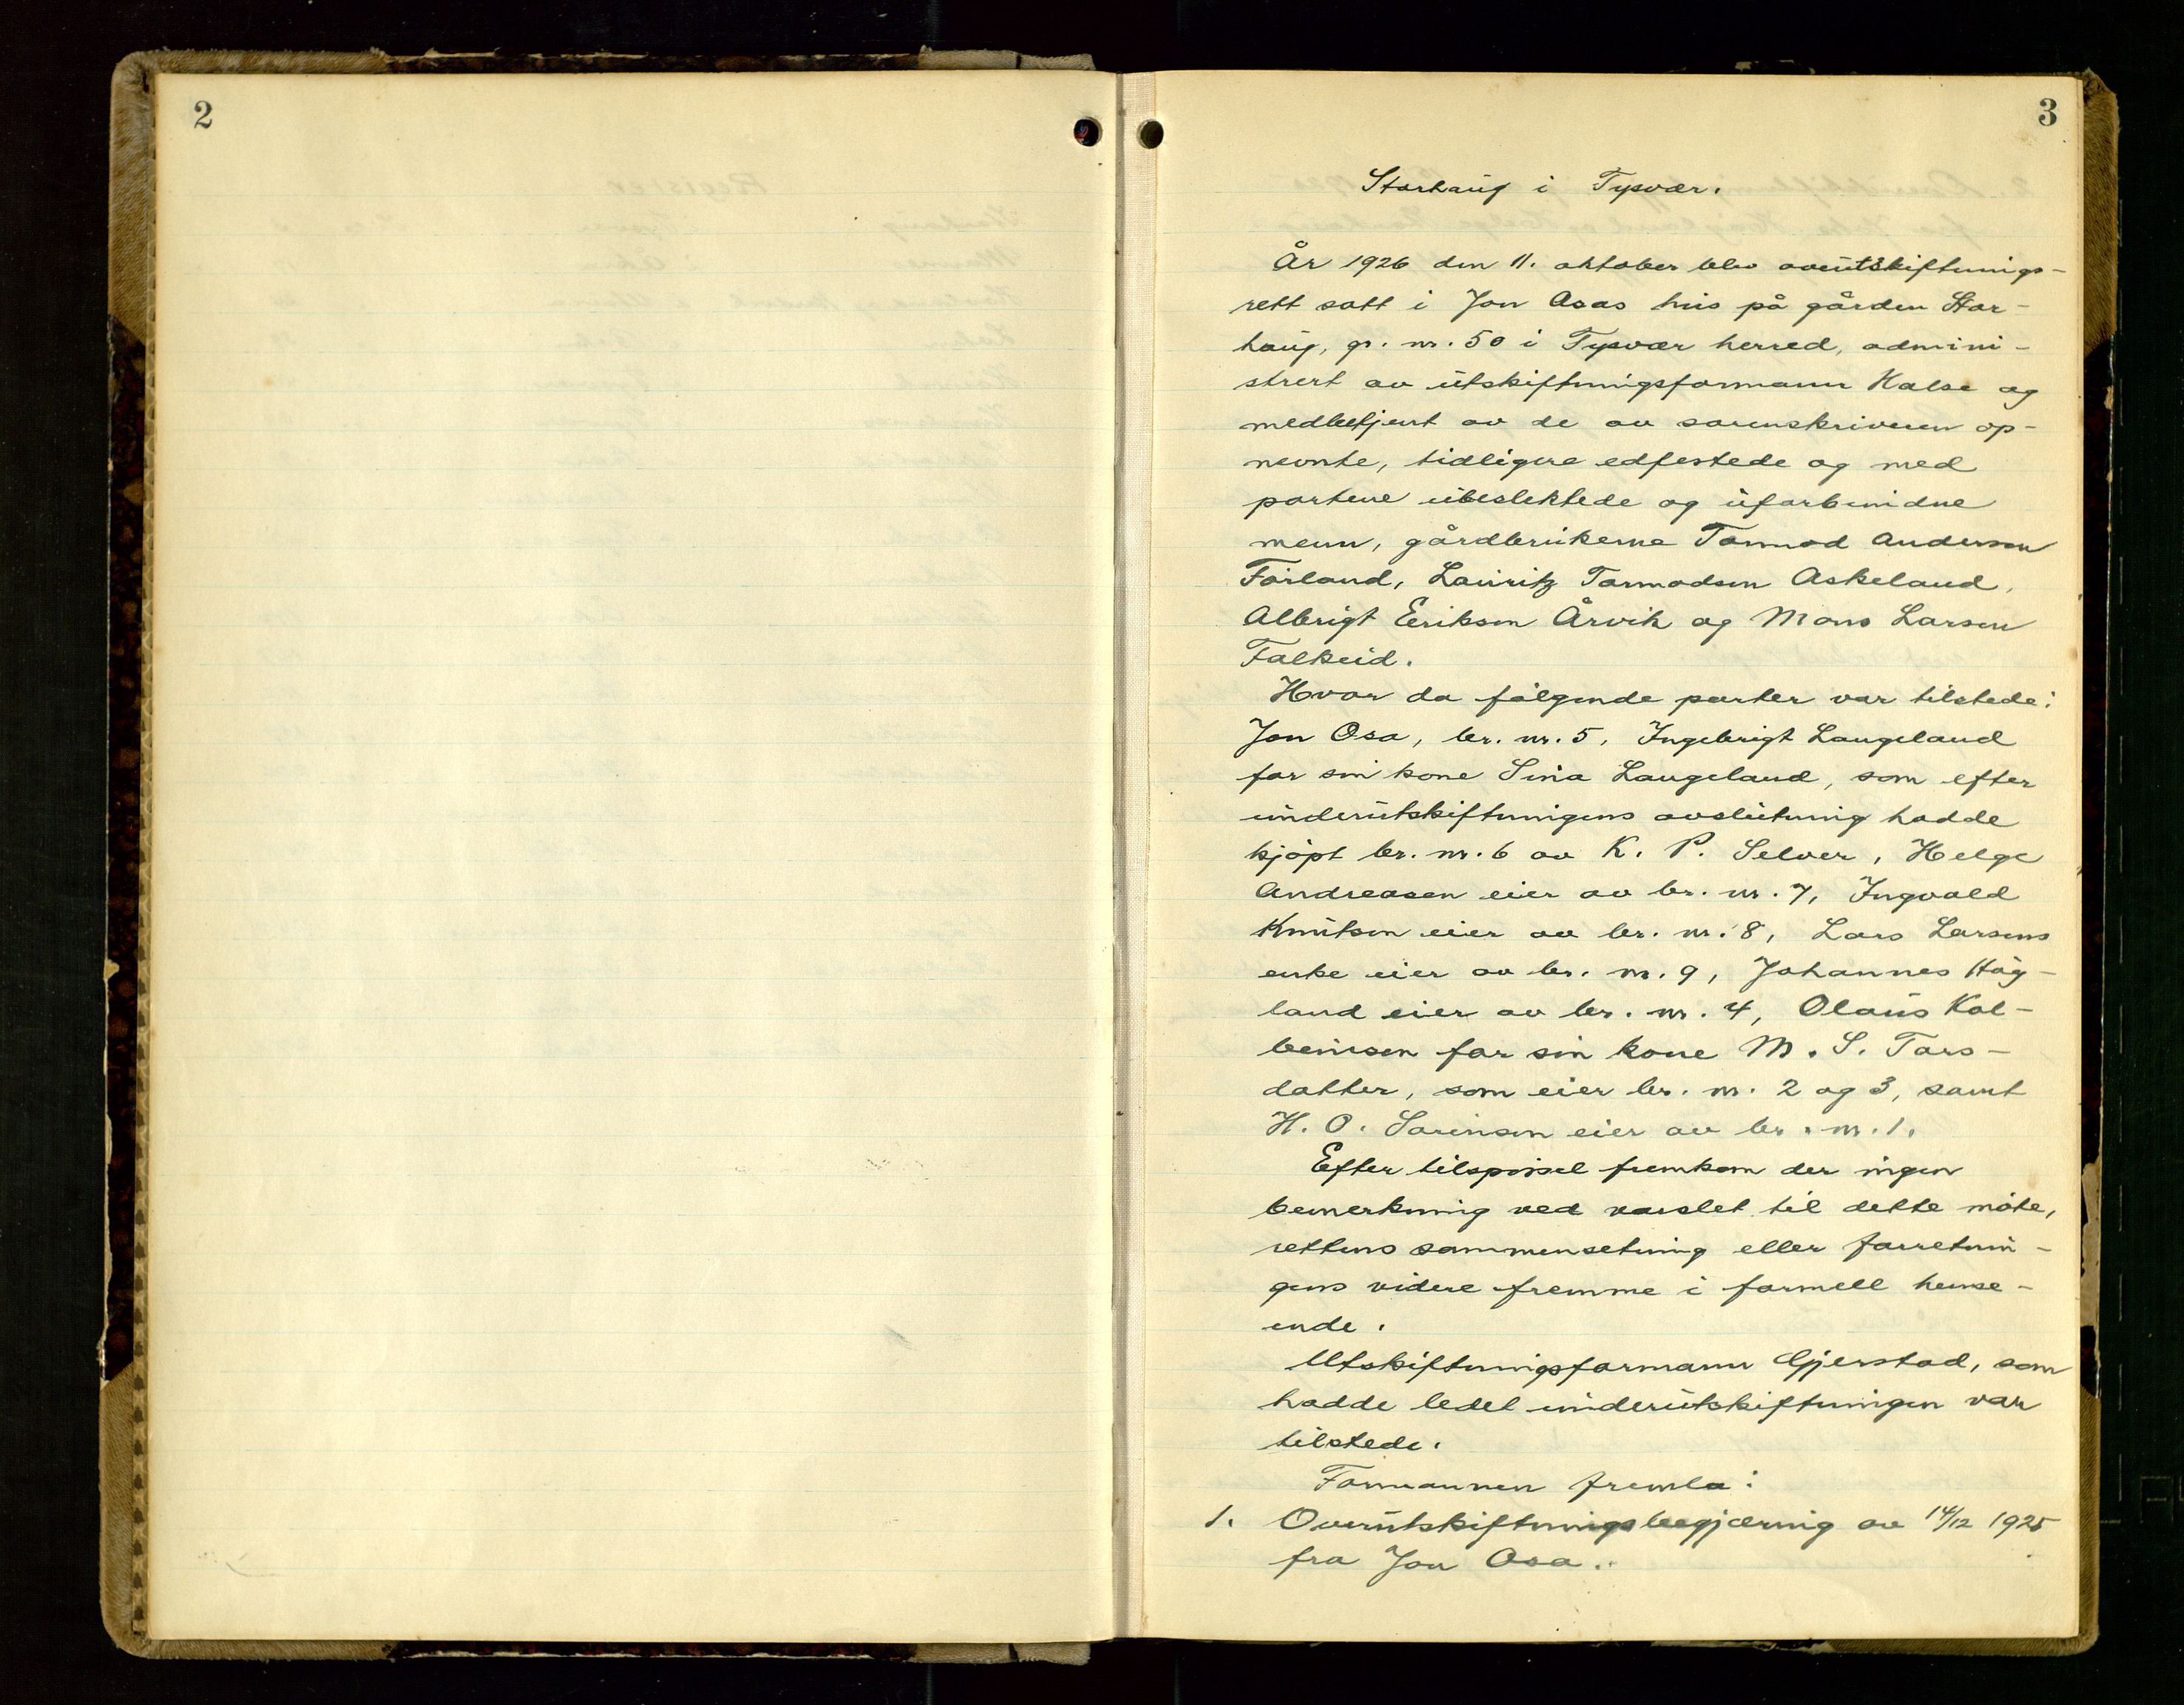 2
3
Storhaug i Tysvær.
År 1926 den 11. oktober blev overutskiftnings-
rett satt i Jon Osas hus på gården Stor-
haug, gr. nr. 50 i Tysvær herred, admini-
strert av utskiftningsformann Halse og
medbetjent av de av sorenskriveren op-
nevnte, tidligere edfestede og med
partene ubeslektede og uforbundne
menn, gårdbrukerne Tormod Anderson
Førland, Lauritz Tormodsen Askeland,
Albrigt Erikson Årvik og Mons Larsen
Falkeid.
Hvor da følgende parter var tilstede:
Jon Osa, br. nr. 5, Ingebrigt Langeland
for sin kone Sina Langeland, som efter
underutskiftningens avslutning hadde
kjøpt br. nr. 6 av K. P. Selver, Helge
Andreasen eier av br. nr. 7, Ingvald
Knutsen eier av br. nr. 8, Lars Larsens
enke eier av br. nr. 9, Johannes Høg-
land eier av br. nr. 4, Olaus Kol-
beinsen for sin kone M. S. Tors-
datter, som eier br. nr. 2 og 3, samt
H. O. Sørinsen eier av br. nr. 1.
Efter tilspørsel fremkom der ingen
bemerkning ved varslet til dette møte,
rettens sammensetning eller forretnin-
gens videre fremme i formell hense-
ende.
Utskiftningsformann Gjerstad, som
hadde ledet underutskiftningen var
tilstede.
Formannen fremla:
1. Overutskiftningsbegjæring av 14/12 1925
fra Jon Osa.